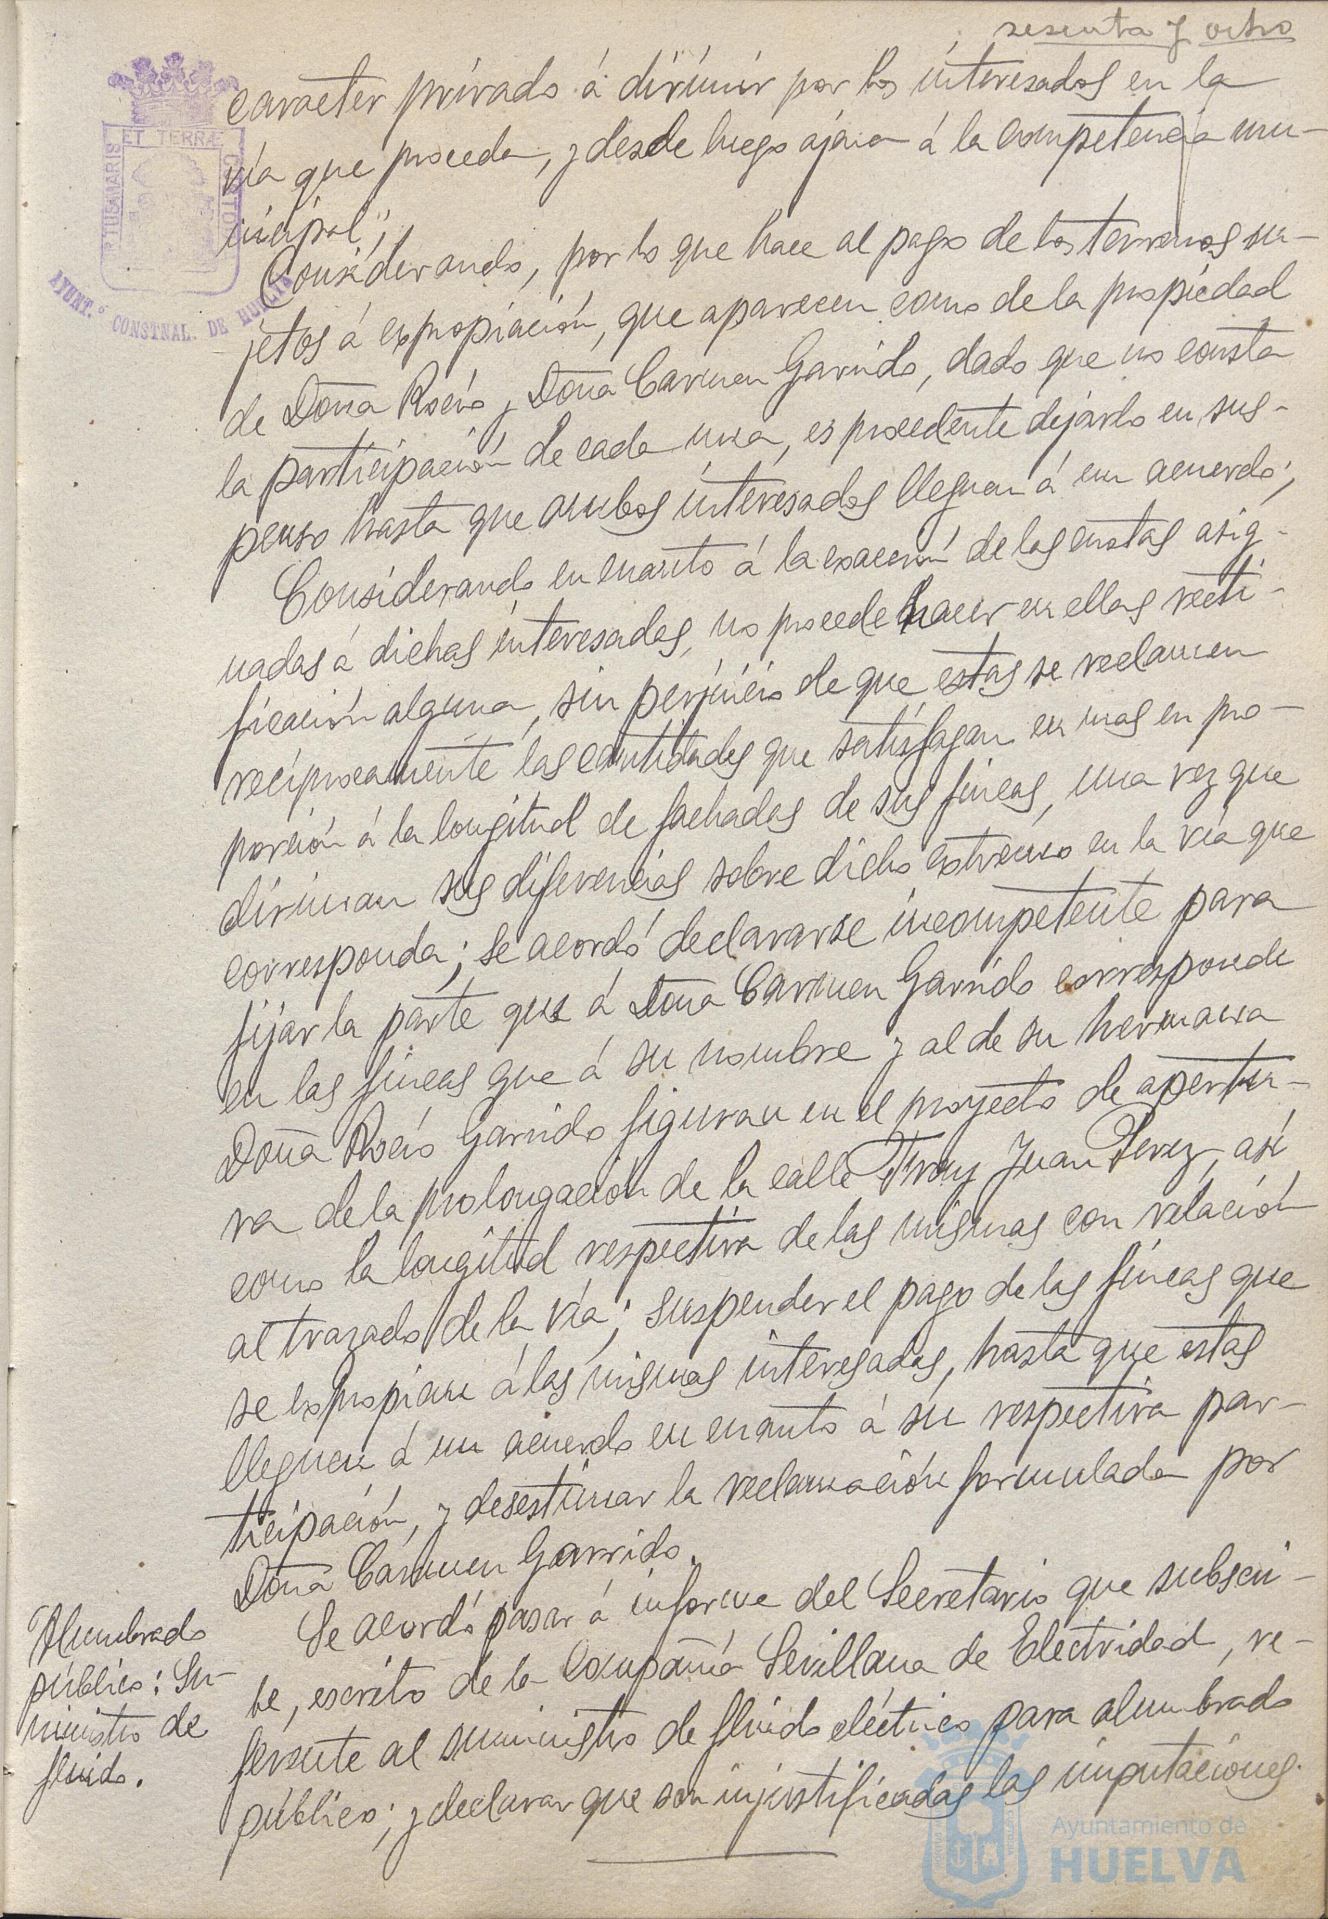 sesenta y ocho
caracter privado á dirimir por los interesados en la
vía que proceda, y desde luego ajena á la competencia mu-
nicipal";
Considerando, por lo que hace al pago de los terrenos su-
jetos á expropiación, que aparecen como de la propiedad
de Doña Rocío y Doña Carmen Garrido, dado que no consta
la participación de cada una, es procedente dejarlo en sus-
penso hasta que ambos interesados lleguen á un acuerdo;
Considerando en cuanto á la exacción de las cuotas asig-
nadas á dichas interesadas, no procede hacer en ellas recti-
ficación alguna, sin perjuicio de que estas se reclamen
reciprocamente las cantidades que satisfagan en mas en pro-
porción á la longitud de fachadas de sus fincas, una vez que
diriman sus diferencias sobre dicho extremo en la vía que
corresponda; se acordó declararse incompetente para
fijar la parte que á Doña Carmen Garrido corresponde
en las fincas que á su nombre y al de su hermana
Doña Rocío Garrido figuran en el proyecto de apertu-
ra de la prolongación de la calle Fray Juan Perez, así
como la longitud respectiva de las mismas con relación
al trazado de la vía; suspender el pago de las fincas que
se expropian á las mismas interesadas, hasta que estas
lleguen á un acuerdo en cuanto á su respectiva par-
ticipación, y desestimar la reclamación formulada por
Doña Carmen Garrido.
Alumbrado
público: Su-
ministro de
fluido.
Se acordó pasar á informe del Secretario que subscri-
be, escrito de la Compañía Sevillana de Electricidad, re-
ferente al suministro de fluido eléctrico para alumbrado
público; y declarar que son injustificadas las imputaciones
PORTUS MARIS ET TERRÆ CUSTODIA
AYUNT.º CONSTNAL. DE HUELVA
Ayuntamiento de
HUELVA